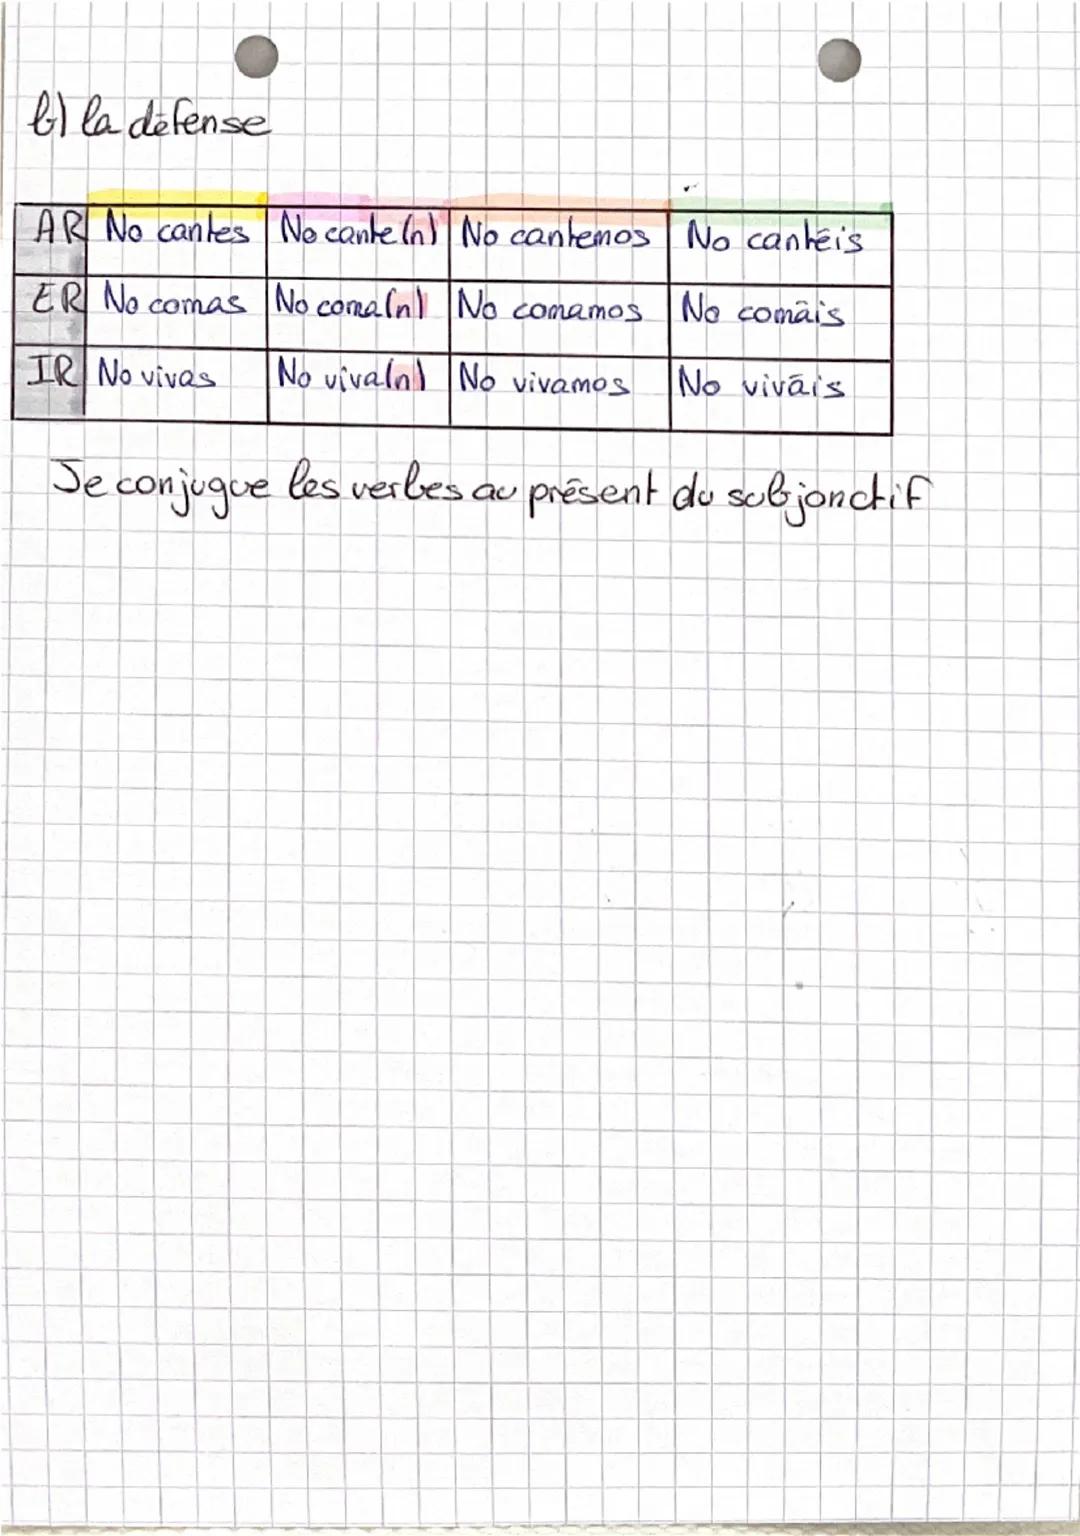 b) la défense
AR No cantes No cante(n) No cantemos No cantéis
ER No comas No coma(n) No comamos No comáis
IR No vivas No viva(n) No vivamos No viváis
Je conjugue les verbes au présent du subjonctif